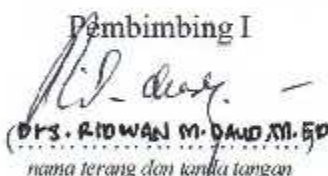 Pembimbing I
(Drs. RIDWAN M. DAUD, M. Ed
nama terang dan tanda tangan